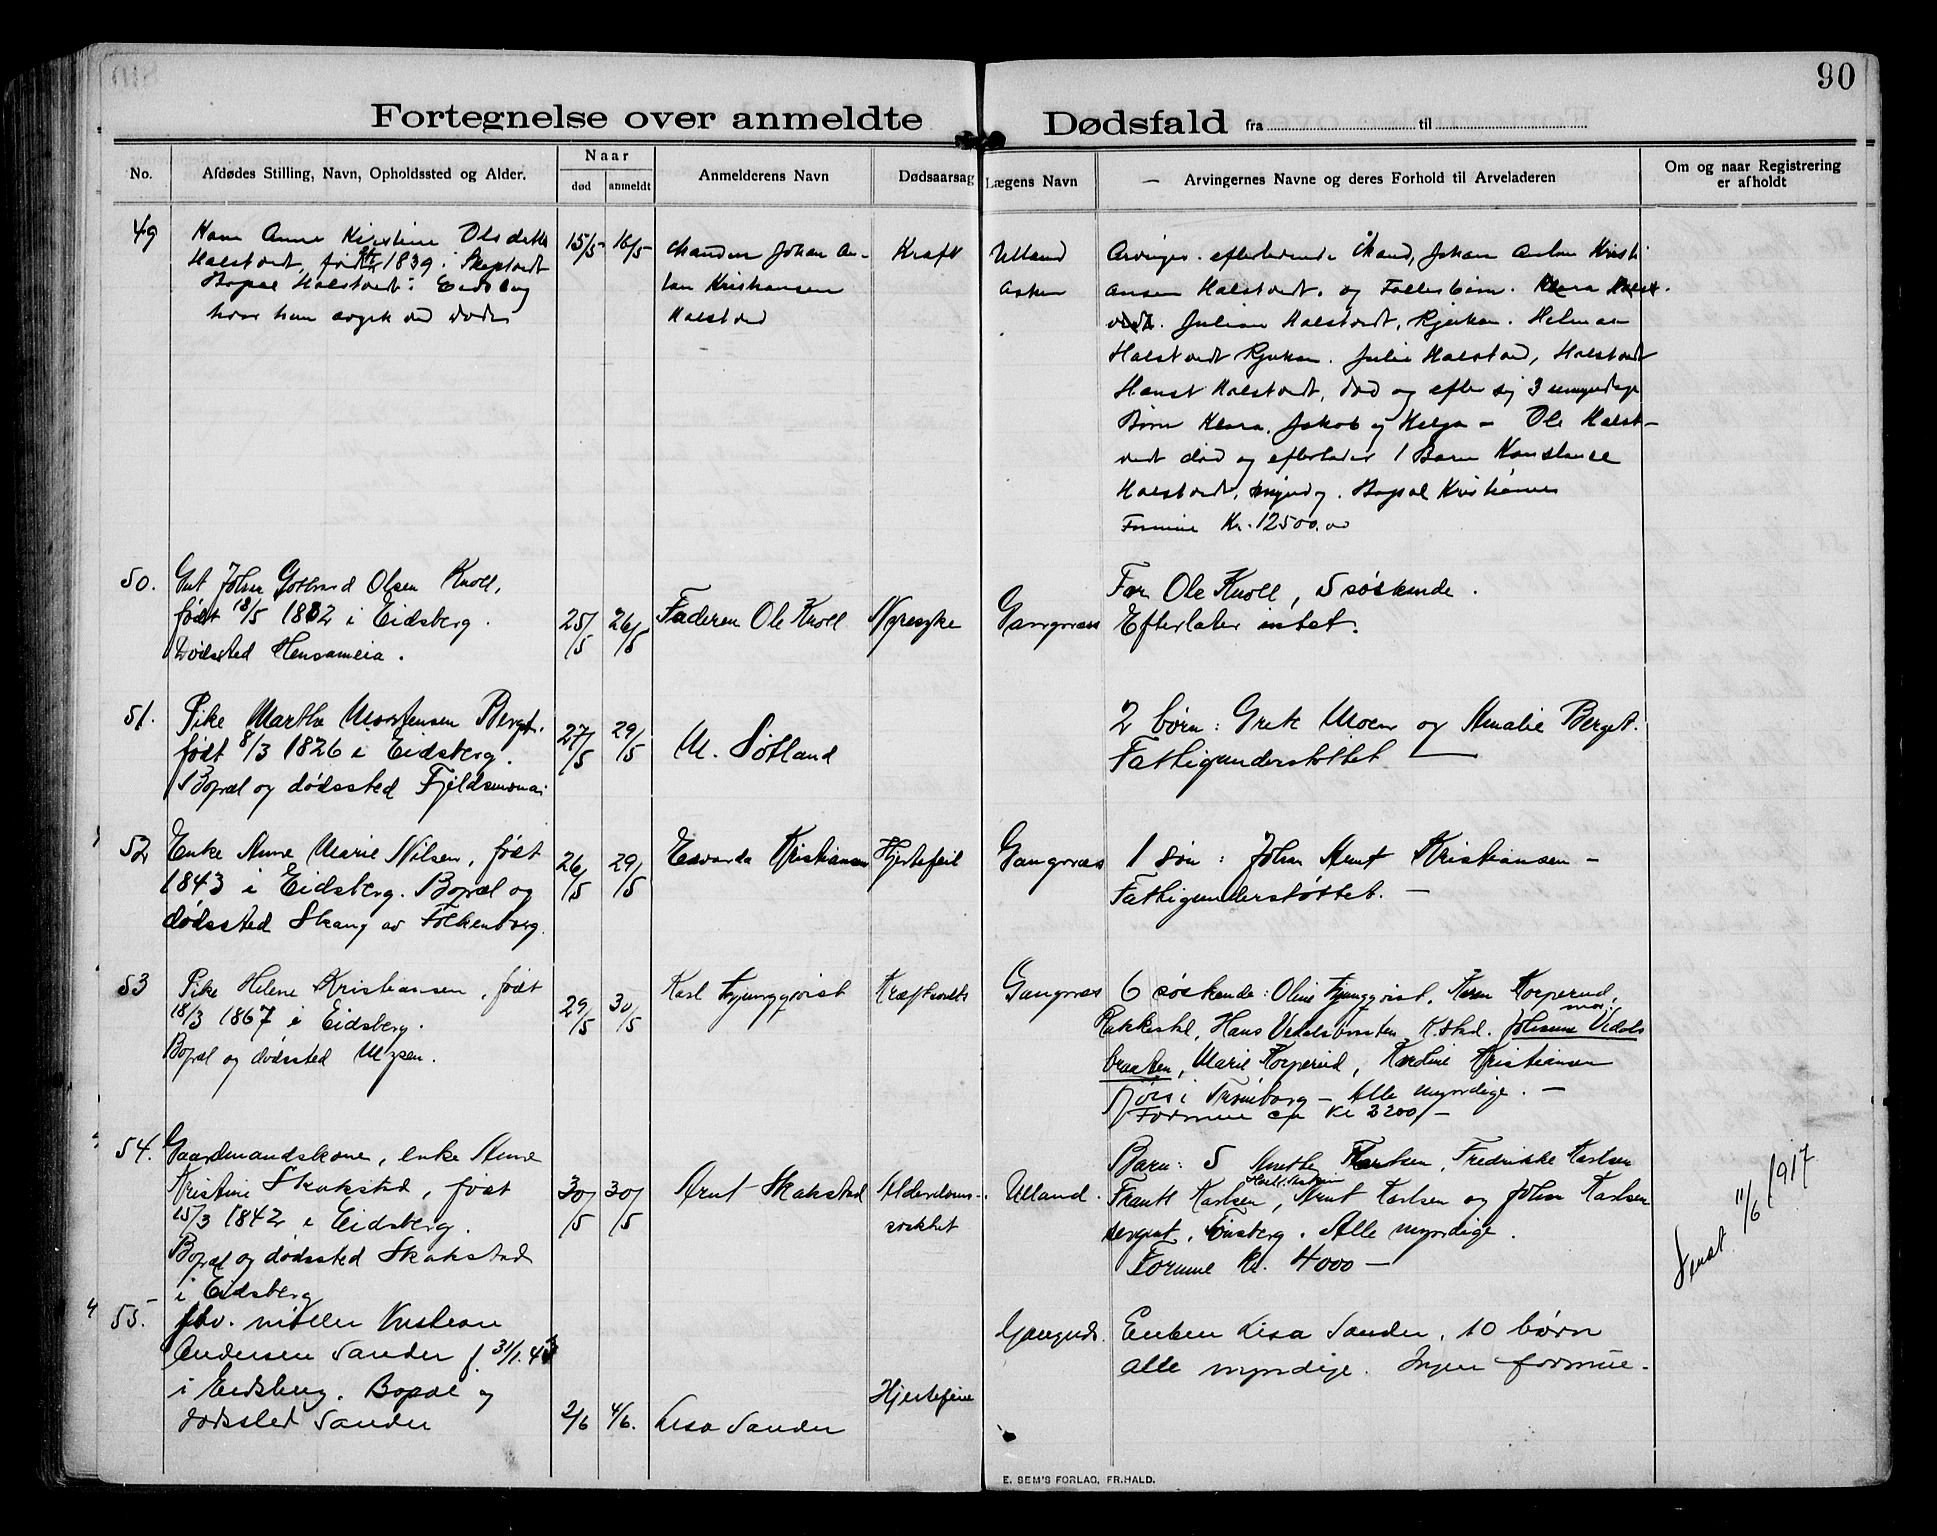 90
Fortegnelse over anmeldte Dødsfald fra til
No.
Afdødes Stilling, Navn, Opholdssted og Alder.
Naar
død
anmeldt
Anmelderens Navn
Dødsaarsag
Lægens Navn
— Arvingernes Navne og deres Forhold til Arveladeren
Om og naar Registrering
er afholdt
49
Kone Anne Kirstine Olsdatter
Halstvedt, født 1839 i
Bopæl Halstvedt i Eidsberg
hvor hun avgik ved døden
15/5
16/5
Manden Johan An-
ton Kristiansen
Halstved
Kræft
Ulland
Askim
Arvinger. efterlevende Mand, Johan Anton Kristi
ansen Halstvedt. og Fællesbørn.
Julian Halstvedt, Rjukan. Helmar
Halstvedt Rjukan. Julie Halstved, Halstvedt
Halstvedt, død og efter sig 3 umyndige
Børn Klara. Jakob og Helga - Ole Halst-
vedt død og efterlader 1 Barn Konstance
Halstvedt, myndig. Bopæl Kristiania
Formue Kr. 12500.00
50.
Gut Johan Gotbrand Olsen Knoll,
født 18/5 1882 i Eidsberg.
Dødssted Hensameia.
25/5
26/5
Faderen Ole Knoll
Nyresyke
Gangnæs
Far Ole Knoll, 5 søskende.
Efterlater intet.
51.
Pike Marthe Mortensen Berget.
født 8/3 1826 i Eidsberg.
Bopæl og dødssted Fjeldsmona
27/5
29/5
M. Søtland
2 børn: Grete Moen og Amalie Berget.
Fattigunderstøttet —
52
Enke Anne Marie Nilsen, født
1843 i Eidsberg. Bopæl og
dødssted Skaug av Folkenborg.
26/5
29/5
Edvarda Kristiansen
Hjertefeil
Gangnæs
1 søn: Johan Arnt Kristiansen -
Fattigunderstøttet. —
53
Pike Helene Kristiansen, født
18/3 1867 i Eidsberg.
Bopæl og dødssted Mysen.
29/5
30/5
Karl Ljungqvist
Kræftsvulst
Gangnæs
6 søskende: Oline Ljungqvist, Karen Korperud,
Rakkestad, Hans Vedalsbraaten, R.stad. Johanne Vedals
braaten, Marie Korperud, Karoline Kristiansen
Fjøs i Trømborg - Alle myndige. —
Formue ca Kr 3200 -
54.
Gaardmandskone, enke Anne
Kristine Skakstad, født
15/3 1842 i Eidsberg.
Bopæl og dødssted Skakstad
i Eidsberg
30/5
30/5
Arnt Skakstad
Alderdoms-
svakhet
Ulland.
Barn: 5 Anethe Karlsen, Fredrikke Karlsen
Frantz Karlsen, Arnt Karlsen og Johan Karlsen
sergeant, Tønsberg. Alle myndige.
Formue Kr. 4000 —
Sendt 11/6 1917.
55.
fhv. møller Kristian
Andersen Sander f. 31/1. 43
i Eidsberg. Bopæl og
dødssted Sander
2/6
4/6.
Lisa Sander
Hjertefeil
Gangnæs.
Enken Lisa Sander, 10 børn
alle myndige. Ingen formue.
E. SEM'S FORLAG, FR.HALD.